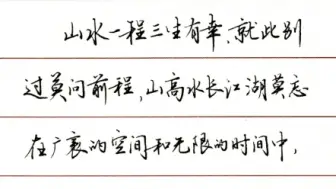 山水一程三生有幸,就此别
过莫问前程,山高水长江湖莫忘
在广袤的空间和无限的时间中,